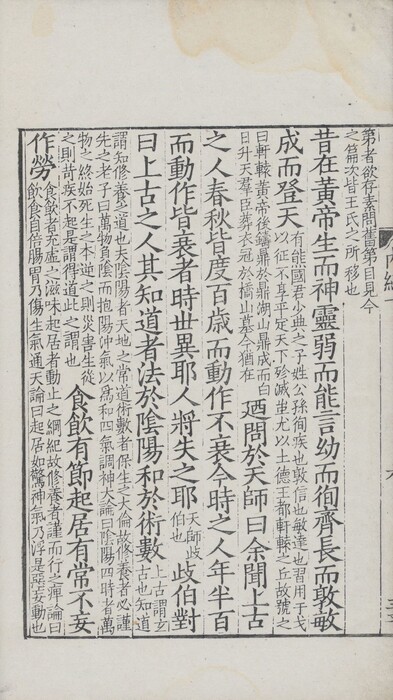 第者欲存素問舊第目見今
之篇次皆王氏之所移也
昔在黃帝生而神靈弱而能言幼而徇齊長而敦敏
成而登天
有熊國君少典之子姓公孫徇疾也敦信也敏達也習用干戈
以征不享平定天下殄滅蚩尤以土德王都軒轅之丘故號之
曰軒轅黃帝後鑄鼎於鼎湖山鼎成而白
日升天羣臣葬衣冠於橋山墓今猶在
迺問於天師曰余聞上古
之人春秋皆度百歲而動作不衰今時之人年半百
而動作皆衰者時世異耶人將失之耶
天師歧
伯也
歧伯對
曰上古之人其知道者法於陰陽和於術數
上古謂玄
古也知道
謂知修養之道也夫陰陽者天地之常道術數者保生之大倫故修養者必謹
先之老子曰萬物負陰而抱陽沖氣以爲和四氣調神大論曰陰陽四時者萬
物之終始死生之本逆之則災害生從
之則苛疾不起是謂得道此之謂也
食飲有節起居有常不妄
作勞
食飲者充虛之滋味起居者動止之綱紀故修養者謹而行之痺論曰
飲食自倍腸胃乃傷生氣通天論曰起居如驚神氣乃浮是惡妄動也